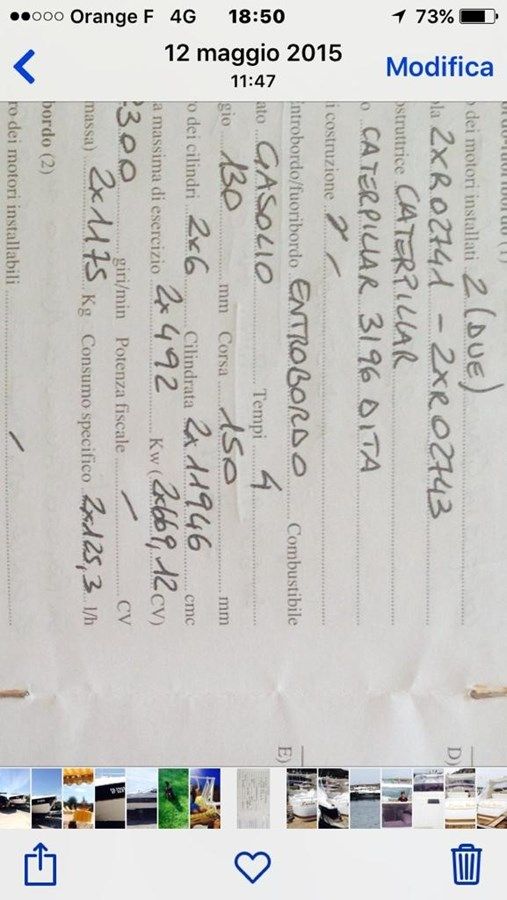 Orange F 4G 18:50 73%
12 maggio 2015
11:47
Modifica
dei motori installati 2 (DUE)
2XR02741 - 2XR02743
ostruttrice CATERPILLAR
CATERPILLAR 3196 DITA
i costruzione
ntrobordo/fuoribordo ENTROBORDO Combustibile
ato GASOLIO Tempi 4
gio 130 mm Corsa 150 mm
o dei cilindri 2x6 Cilindrata 2x11946 cmc
a massima di esercizio 2x492 Kw (2x669,12 CV)
2300 giri/min Potenza fiscale / CV
massa) 2x1175 Kg Consumo specifico 2x125,3 l/h
bordo (2)
ro dei motori installabili /
D)
E)